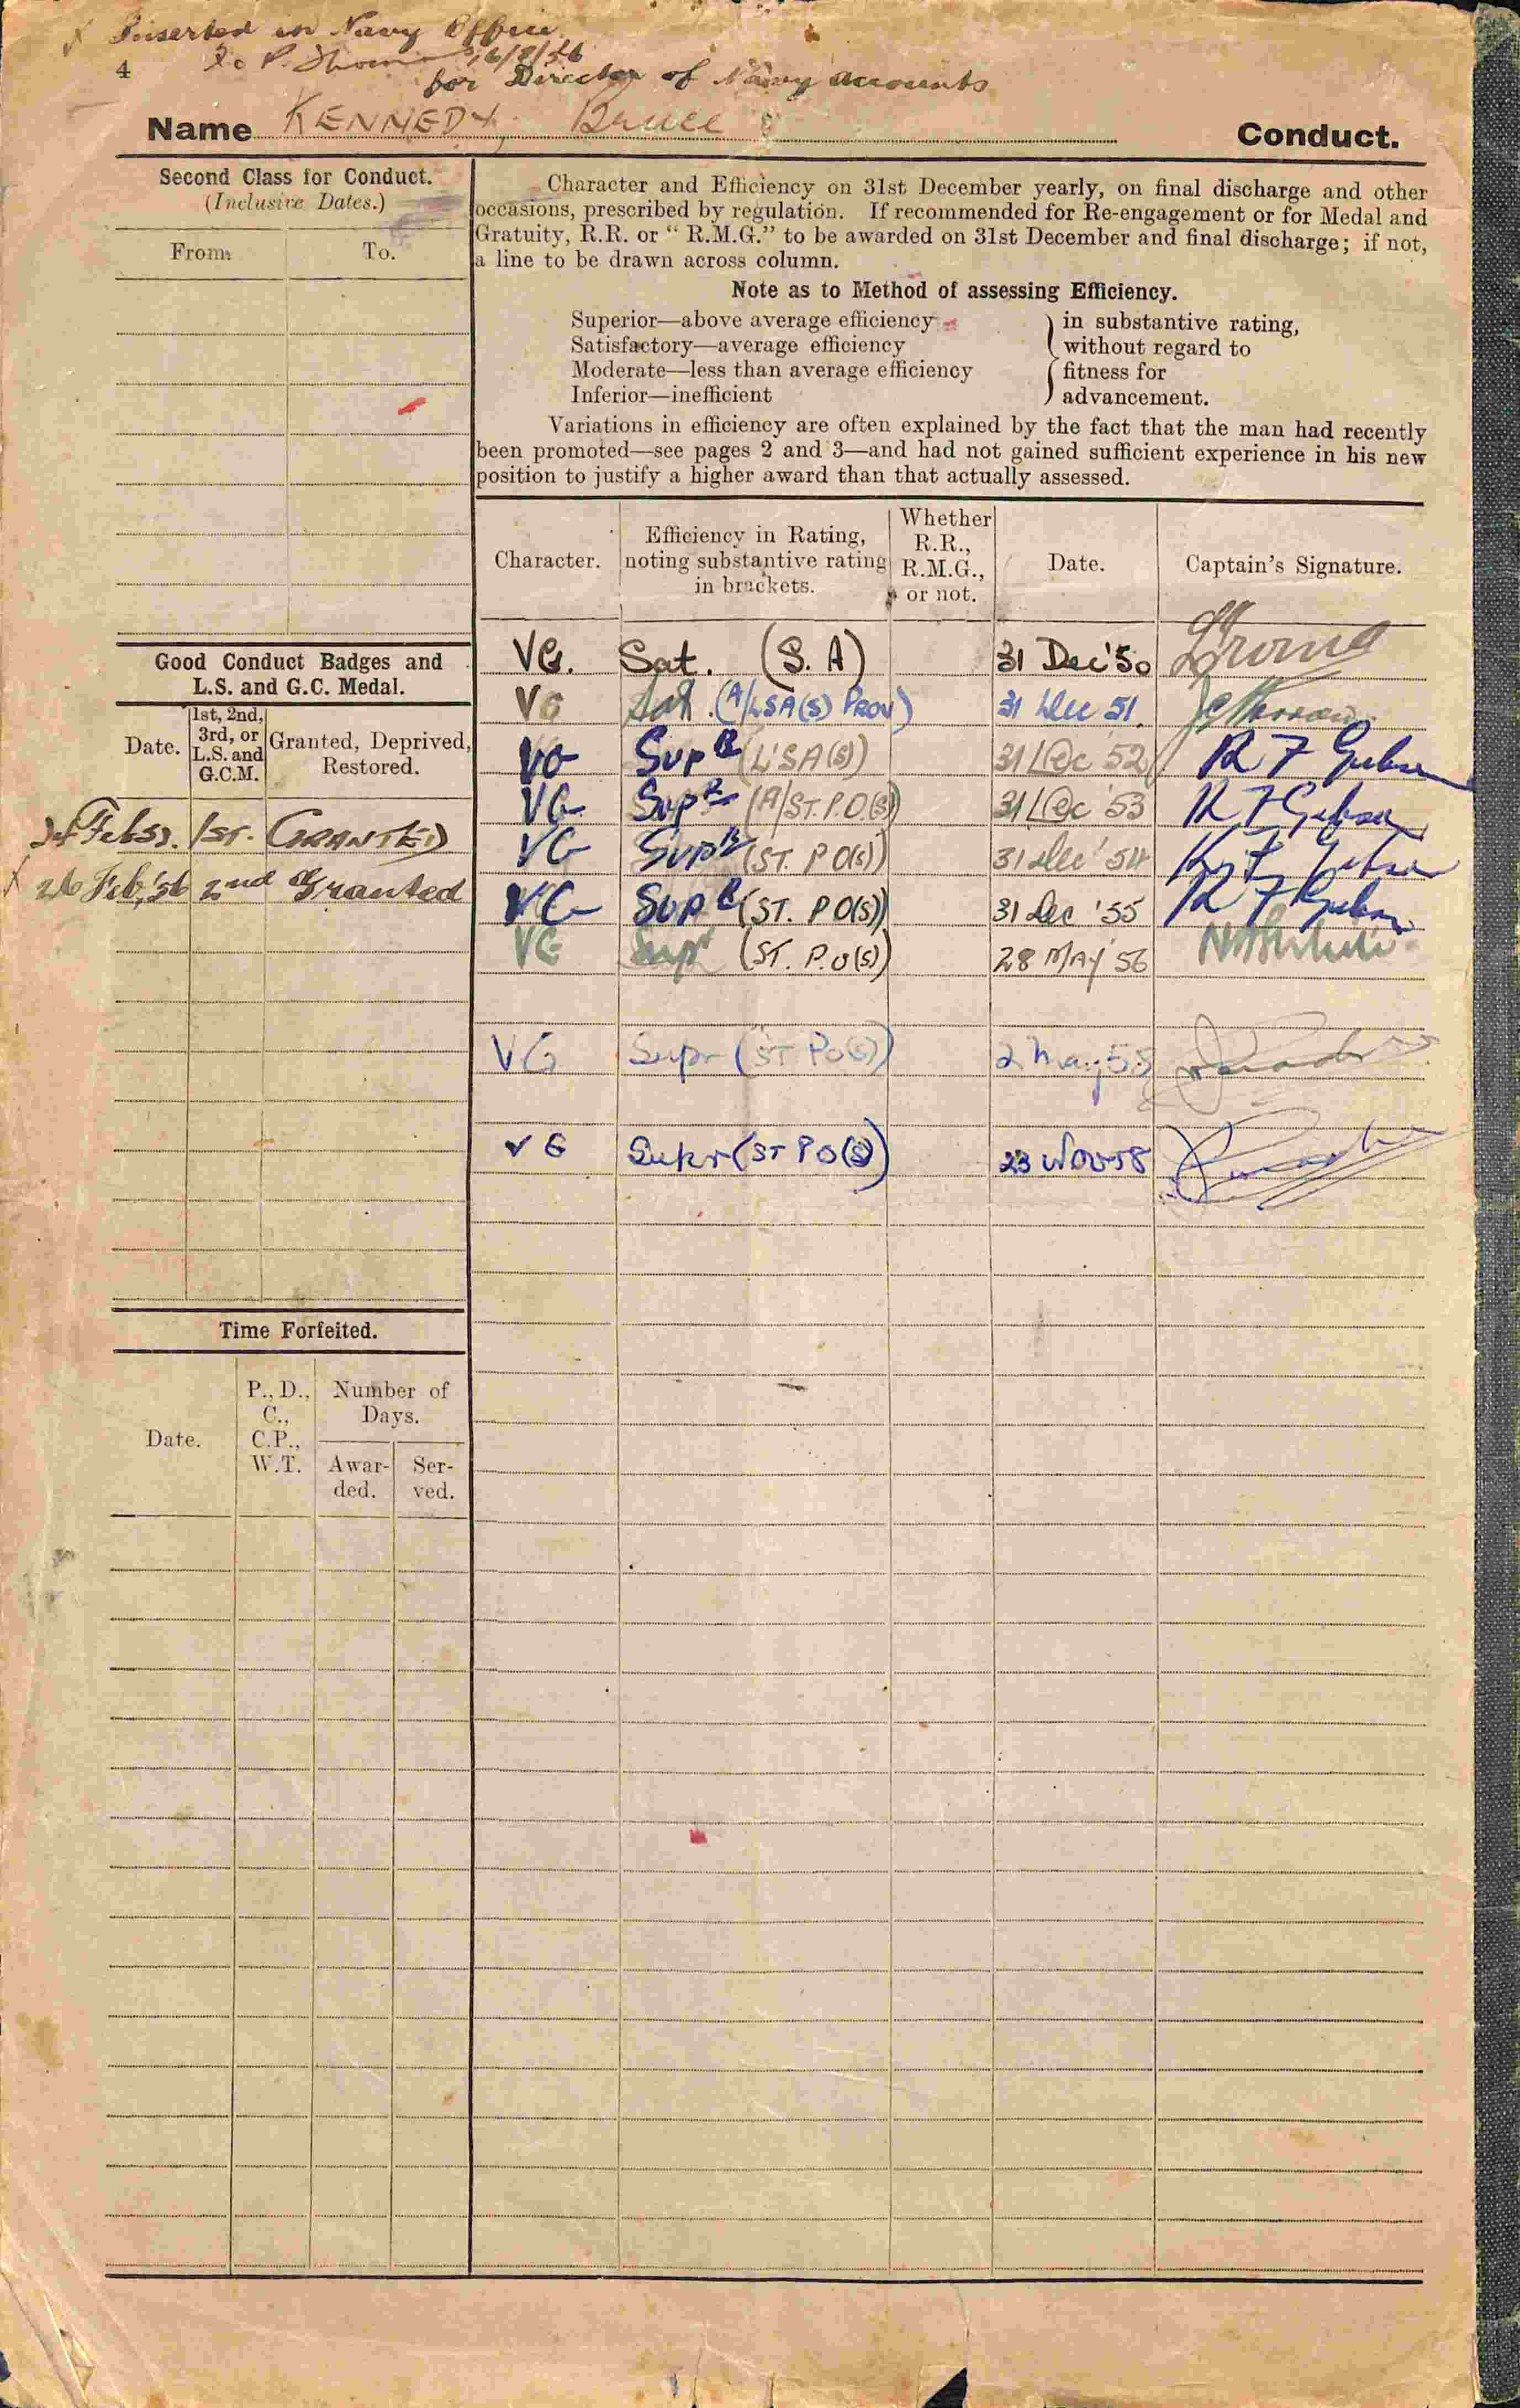 Inserted in Navy Office
4
16/8/56
for Director of Navy Accounts
Name KENNEDY, Bruce
Conduct.
Second Class for Conduct.
(Inclusive Dates.)
From. To.
Character and Efficiency on 31st December yearly, on final discharge and other
occasions, prescribed by regulation. If recommended for Re-engagement or for Medal and
Gratuity, R.R. or “ R.M.G.” to be awarded on 31st December and final discharge; if not,
a line to be drawn across column.
Note as to Method of assessing Efficiency.
Superior—above average efficiency
Satisfactory—average efficiency
Moderate—less than average efficiency
Inferior—inefficient
in substantive rating,
without regard to
fitness for
advancement.
Variations in efficiency are often explained by the fact that the man had recently
been promoted—see pages 2 and 3—and had not gained sufficient experience in his new
position to justify a higher award than that actually assessed.
Character.
Efficiency in Rating,
noting substantive rating
in brackets.
Whether
R.R.,
R.M.G.,
or not.
Date.
Captain's Signature.
VG. Sat. (S.A) 31 Dec '50
VG Sat. (A/LSA(S) PROV) 31 Dec 51.
VG Supr (LSA(S)) 31 Dec '52 R F Gibson
VG Supr (A/ST.P.O.(S)) 31 Dec '53 R F Gibson
VG Supr (ST. PO(S)) 31 Dec '54
VG Supr (ST. PO(S)) 31 Dec '55 R F Gibson
VG Supr (ST. P.O(S)) 28 MAY '56
VG Supr (ST PO(S)) 2 May 58
VG Supr (ST PO(S)) 23 Nov 58
Good Conduct Badges and
L.S. and G.C. Medal.
Date.
1st, 2nd,
3rd, or
L.S. and
G.C.M.
Granted, Deprived,
Restored.
Feb 1ST. GRANTED
X 26 Feb, '56 2nd Granted
Time Forfeited.
Date.
P., D.,
C.,
C.P.,
W.T.
Number of
Days.
Awar-
ded.
Ser-
ved.